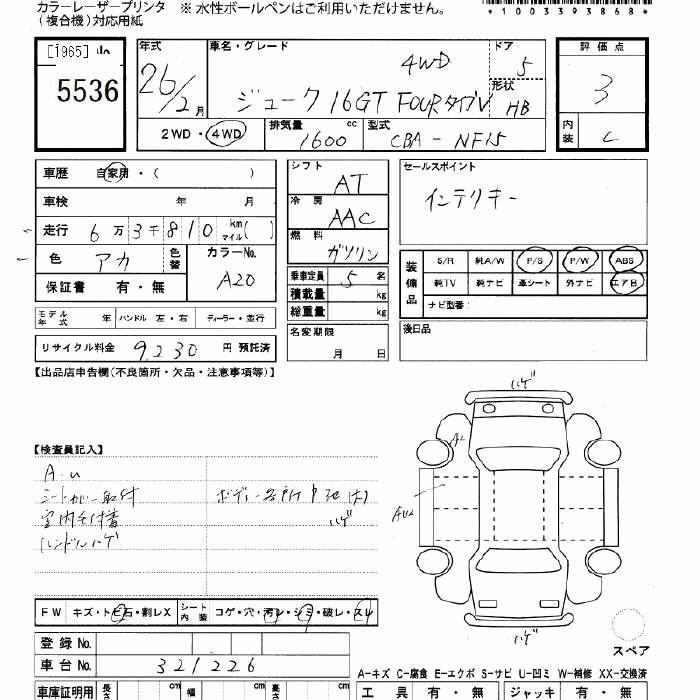 カラーレーザープリンタ ※ 水性ボールペンはご利用いただけません。
(複合機)対応用紙
*1003393868*
[1965]
5536
年式 26/2月
車名・グレード 4WD
ジューク 16GT FOURタイプV
ドア 5
形状 HB
評価点 3
内装 C
2WD・4WD
排気量 1600 cc
型式 CBA-NF15
車歴 自家用・( )
車検 年 月
走行 6万3千810 km マイル( )
色 アカ 色替
カラーNo. A20
保証書 有・無
モデル年式 年 ハンドル 左・右 ディーラー・並行
リサイクル料金 9,230 円 預託済
シフト AT
冷房 AAC
燃料 ガソリン
乗車定員 5 名
積載量 kg
総重量 kg
名変期限 月 日
セールスポイント
インテリキー
装備品 S/R 純A/W P/S P/W ABS
純TV 純ナビ 革シート 外ナビ エアB
ナビ型番:
後日品
【出品店申告欄(不良箇所・欠品・注意事項等)】
【検査員記入】
A・U
シートカバー取付
室内キズ付着
ハンドルハゲ
ハゲ
ハゲ
AU2
ハゲ
スペア
FW キズ・トビ石・割レX シート内装 コゲ・穴・汚レ・シミ・破レ・スレ
登録No.
車台No. 321226
A-キズ C-腐食 E-エクボ S-サビ U-凹ミ W-補修 XX-交換済
車庫証明用 長さ cm 幅 cm 高さ cm
工具 有・無 ジャッキ 有・無